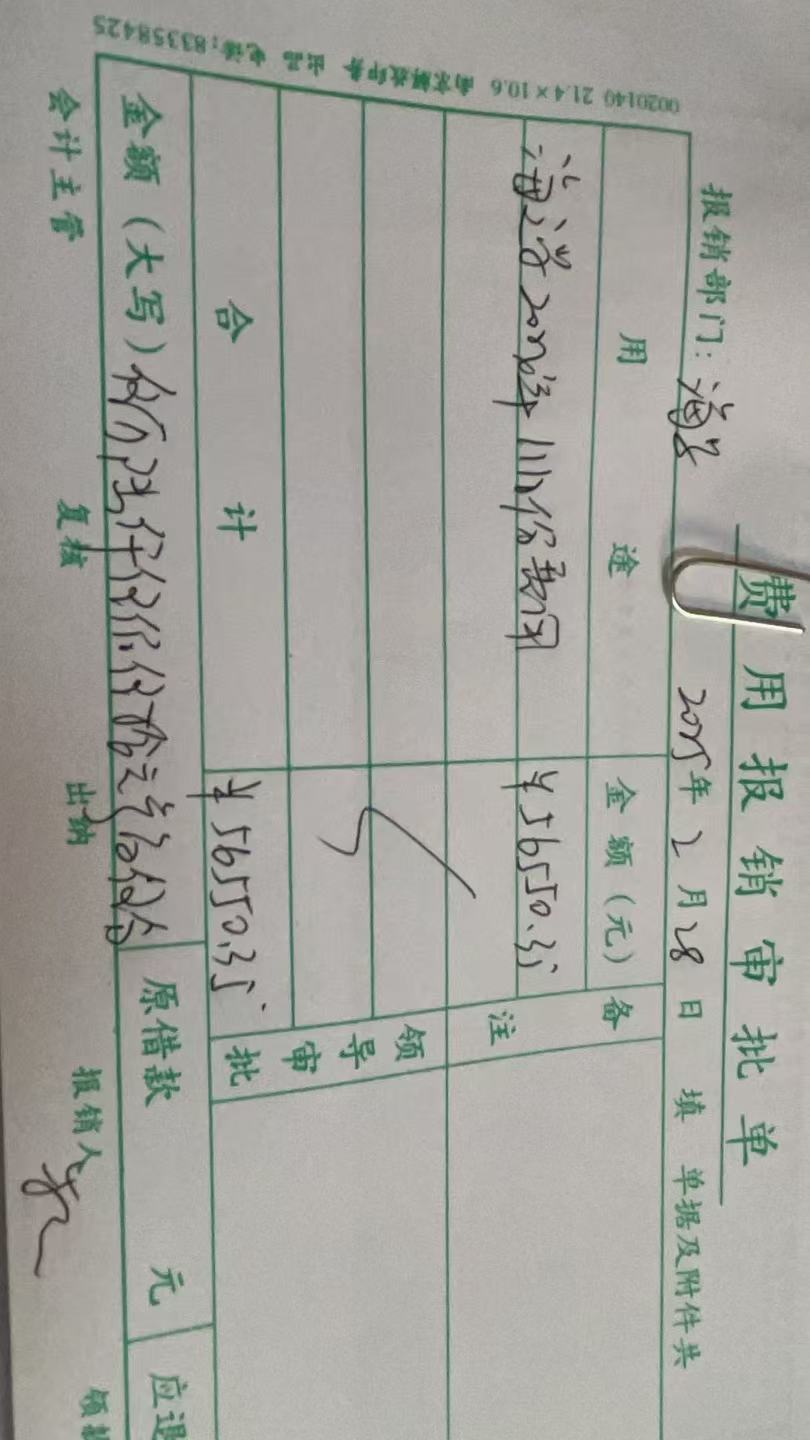 费用报销审批单
报销部门：
2025年2月28日 填 单据及附件共
用途 金额（元） 备注
2025年 1月份费用 ￥56550.35
领导审批
合计 ￥56550.35
金额（大写）伍万陆仟伍佰伍拾元叁角伍分 原借款 元 应退
会计主管 复核 出纳 报销人 领款
0020140 21.4×10.6 出品 电话：83358425